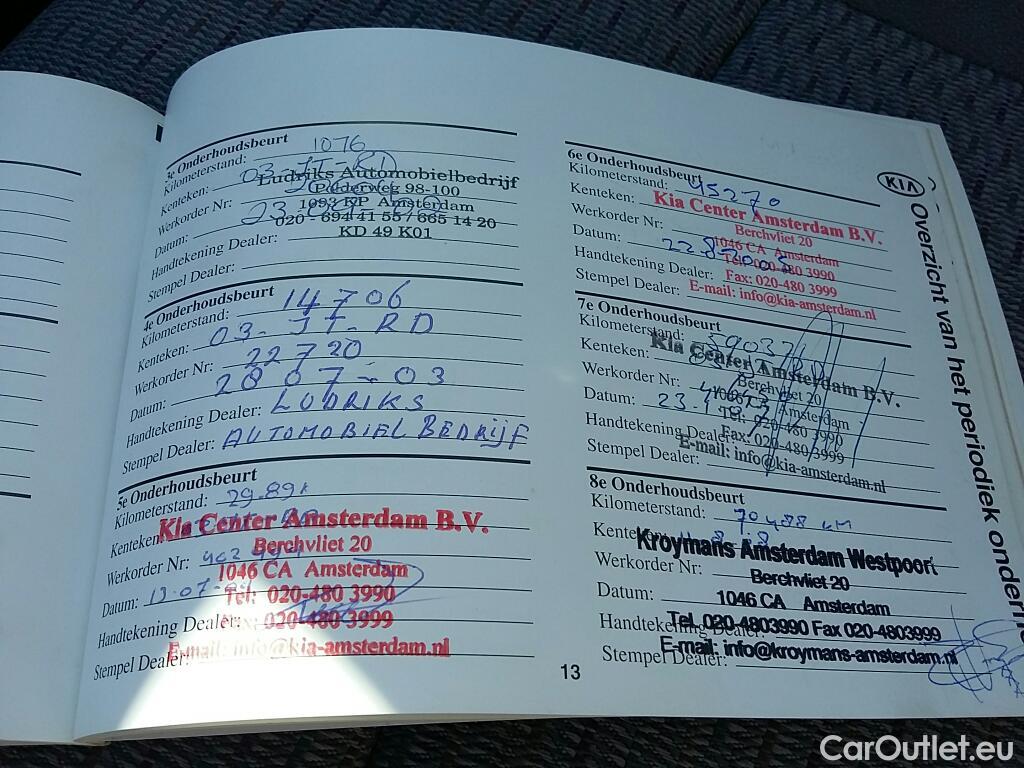 3e Onderhoudsbeurt
Kilometerstand: 1076
Kenteken: 03-JT-RD
Ludriks Automobielbedrijf
Polderweg 98-100
Werkorder Nr:
1093 KP Amsterdam
Datum: 23
020 - 694 41 55 / 665 14 20
Handtekening Dealer:
KD 49 K01
Stempel Dealer:
4e Onderhoudsbeurt
Kilometerstand: 14706
Kenteken: 03-JT-RD
Werkorder Nr: 22720
Datum: 28 07-03
Handtekening Dealer: LUDRIKS
Stempel Dealer: AUTOMOBIEL BEDRIJF
5e Onderhoudsbeurt
Kilometerstand: 29.891
Kenteken:
Kia Center Amsterdam B.V.
Berchvliet 20
Werkorder Nr:
1046 CA Amsterdam
Datum: 13-07-04
Tel: 020-480 3990
Handtekening Dealer:
Fax: 020-480 3999
Stempel Dealer:
E-mail: info@kia-amsterdam.nl
6e Onderhoudsbeurt
Kilometerstand: 45270
Kenteken:
Kia Center Amsterdam B.V.
Berchvliet 20
Werkorder Nr:
1046 CA Amsterdam
Datum: 22-8-2005
Tel: 020-480 3990
Handtekening Dealer:
Fax: 020-480 3999
Stempel Dealer:
E-mail: info@kia-amsterdam.nl
7e Onderhoudsbeurt
Kilometerstand:
Kenteken:
Kia Center Amsterdam B.V.
Berchvliet 20
Werkorder Nr:
1046 CA Amsterdam
Datum:
Tel: 020-480 3990
Handtekening Dealer:
Fax: 020-480 3999
Stempel Dealer:
E-mail: info@kia-amsterdam.nl
8e Onderhoudsbeurt
Kilometerstand: 70488 KM
Kenteken:
Kroymans Amsterdam Westpoort
Werkorder Nr:
Berchvliet 20
Datum:
1046 CA Amsterdam
Handtekening Dealer:
Tel. 020-4803990 Fax 020-4803999
Stempel Dealer:
E-mail: info@kroymans-amsterdam.nl
13
KIA
Overzicht van het periodiek onderh
CarOutlet.eu